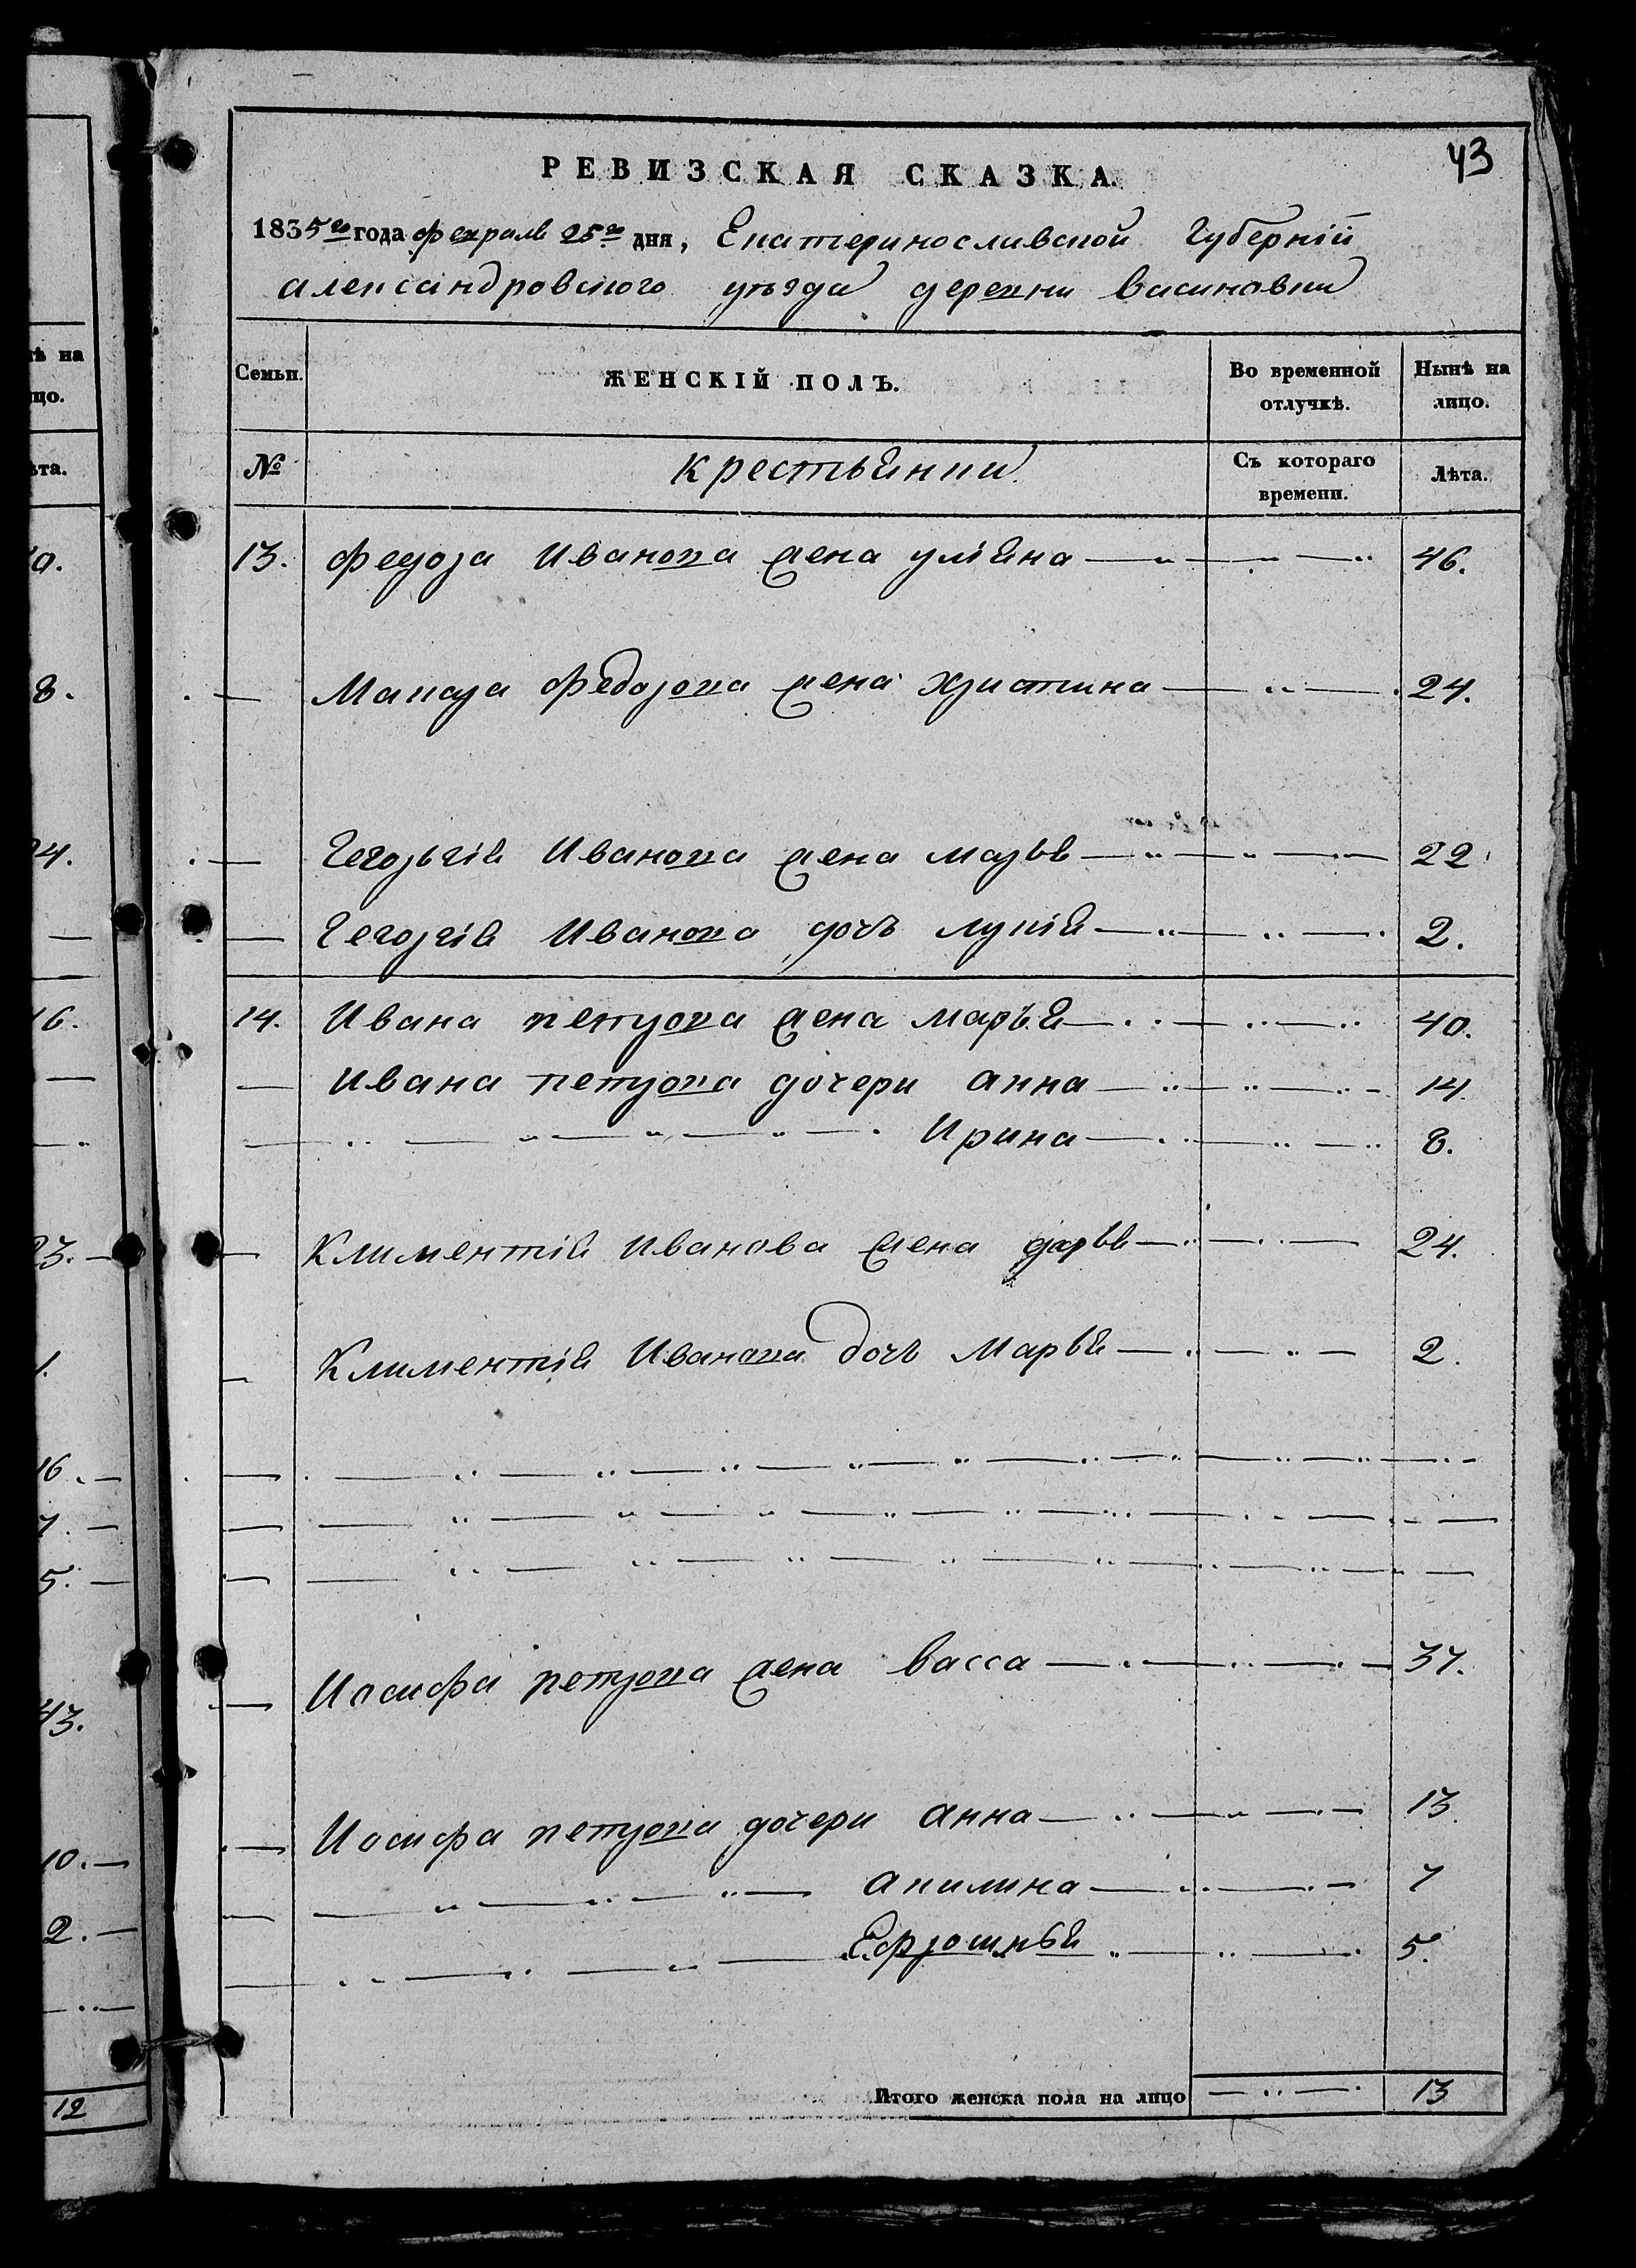 43
РЕВИЗСКАЯ СКАЗКА.
1835го года февраля 25го дня, Екатеринославской Губерніи
александровского уѣзда деревни васиновки
Семьи.
ЖЕНСКІЙ ПОЛЪ.
Во временной отлучкѣ.
Нынѣ на лицо.
№
крестьянки
Съ котораго времени.
Лѣта.
13. Федора Иванова жена ульяна 46.
— Макара Федорова жена христина 24.
— Георгія Иванова жена марья 22
— Георгія Иванова дочь лукія 2.
14. Ивана петрова жена марья 40.
— Ивана петрова дочери анна 14.
— Ирина 8.
— Климентія Иванова жена дарья 24.
— Климентія Иванова дочь Марья 2.
— Иосифа петрова жена васса 37.
— Иосифа петрова дочери анна 13.
— акилина 7
— Ефросинья 5.
Итого женска пола на лицо 13
ѣ на
цо.
ѣта.
0.
8.
24.
16.
23.
1.
16.
7.
5.
43.
10.
2.
12